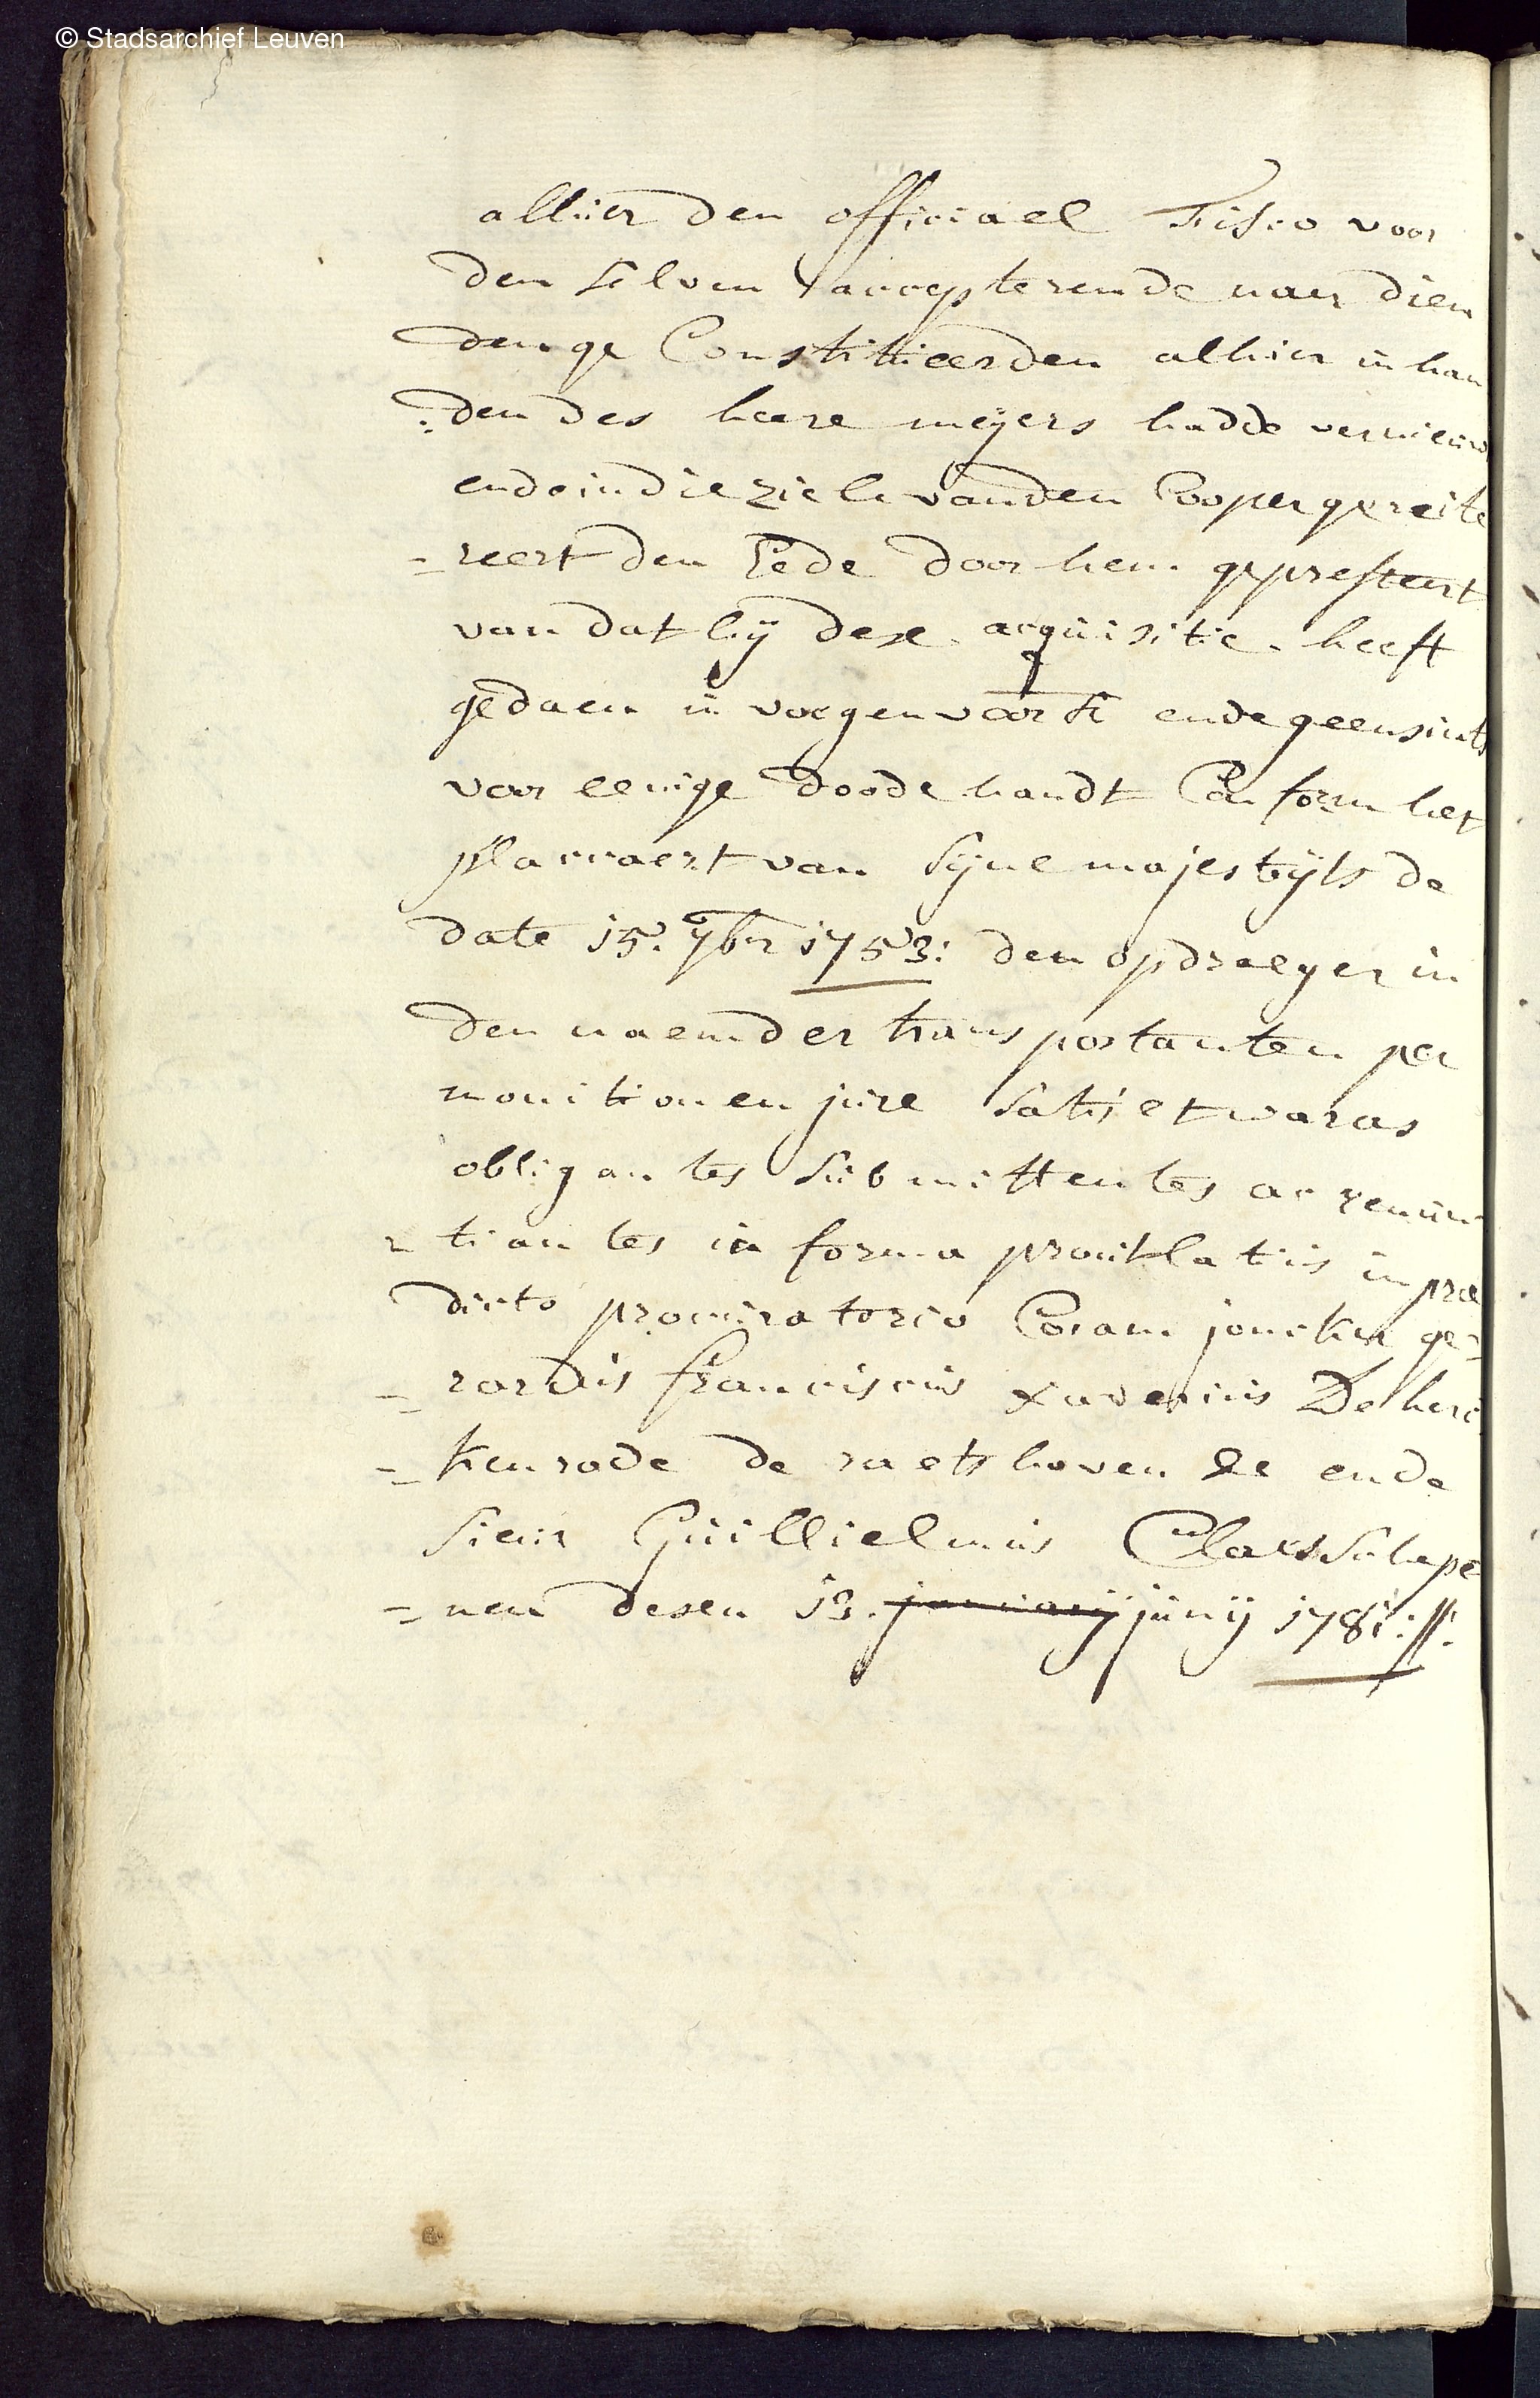 © Stadsarchief Leuven
alhier den officiael Fisco voor
den selven accepterende naer dien
den ge Constitueerden alhier in han
:den des heere meyers hadde vernieuw
ende in die ziele vanden Cooper gereite
=reert den Eede door hem gepresteert
van dat hÿ dese acquisitie heeft
gedaen in voegen voors ende geensints
voor eenige doode handt Conform het
placcaert van sÿne majestÿts de
date 15. 7br 1753: den opdraeger in
den naem der transportanten per
monitionem jure satis et waras
obligantes submittentes ac renun
=tiantes in forma prout latius in præ
dicto procuratorio Coram joncker ge=
=rardus franciscus xaverius De her
=kenrode de raetshoven &e ende
sieur Guillielmus Claes schepe
=nen desen 13. januarÿ junÿ 1781://: